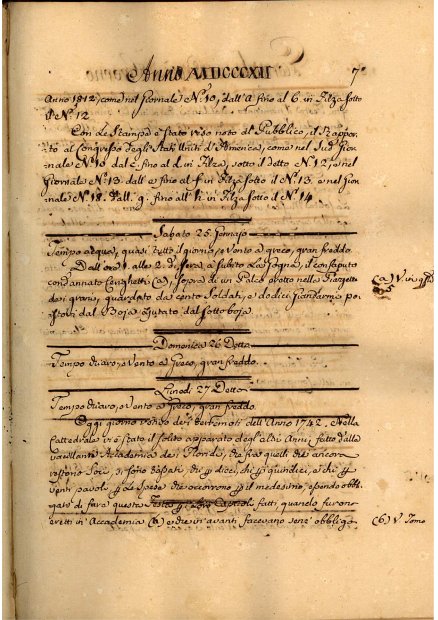 Anno MDCCCXII
7
Anno 1812, come nel Giornale N.º 10, dall'a fino al 6. in Filza sotto
il N.º 12
Con le Stampe è stato reso noto al Pubblico, il Rappor-
to al Congresso degli Stati Uniti d'America, come nel Sud. Gior-
nale N.º 10 dal c. fino al d. in Filza, sotto il detto N.º 12, e nel
Giornale N.º 13. dall' e fino al f. in Filza sotto il N.º 13. e nel Gior-
nale N.º 18. dall. g. fino all' h. in Filza sotto il N.º 14.
Sabato 25 Gennaio
Tempo acqua, quasi tutto il giorno, e Vento a greco, gran freddo
Dall' ore 1. alle 2. di sera, à subito la Gogna, il consaputo
condannato (a), sopra di un Palco eretto nella Piazzetta
dei grani, guardato da cento Soldati, e dodici Gianfarmi po-
stovi dal Boja ajutato dal sotto boja.
(a) V. in
Domenica 26 Detto
Tempo chiaro, e Vento a Greco, gran freddo.
Lunedì 27 Detto
Tempo chiaro, e Vento a Greco, gran freddo.
Oggi giorno dei terremoti dell'Anno 1742. Nella
Cattedrale vi è stato il solito apparato degl'altri Anni fatto dalle
vacillanti Accademie dei Floridi, che fra quelli che ancora
restono Socj, si sono tassati, chi dieci, chi quindici, e chi
venti paoli le spese che occorrono il medesimo, essendo obbli-
gati di fare questa Festa fatti, quando furono
eretti in Accademia (b) e che in avanti facevano senz' obbligo
(b) V. Tomo